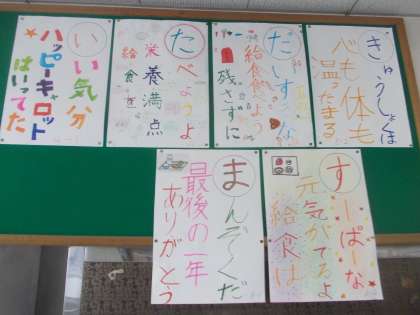 きゅうしょくは
心も体も
温ったまる
だいすきな
給食食べよう
残さずに
たべようよ
栄養満点
給食を
いい気分
ハッピーキャロット
はいってた
すーぱーな
元気がでるよ
給食は
まんぞくだ
最後の一年
ありがとう